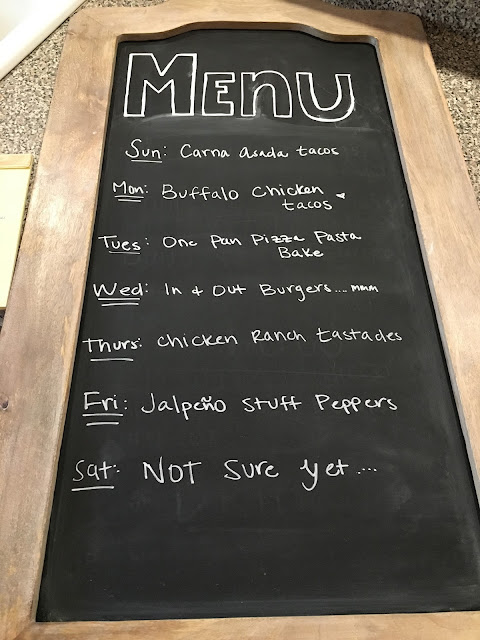 MENU
Sun: Carna asada tacos
Mon: Buffalo Chicken
tacos
Tues: One Pan Pizza Pasta
Bake
Wed: In & Out Burgers.... mmm
Thurs: Chicken Ranch tastades
Fri: Jalpeño Stuff Peppers
Sat: NOT Sure yet....